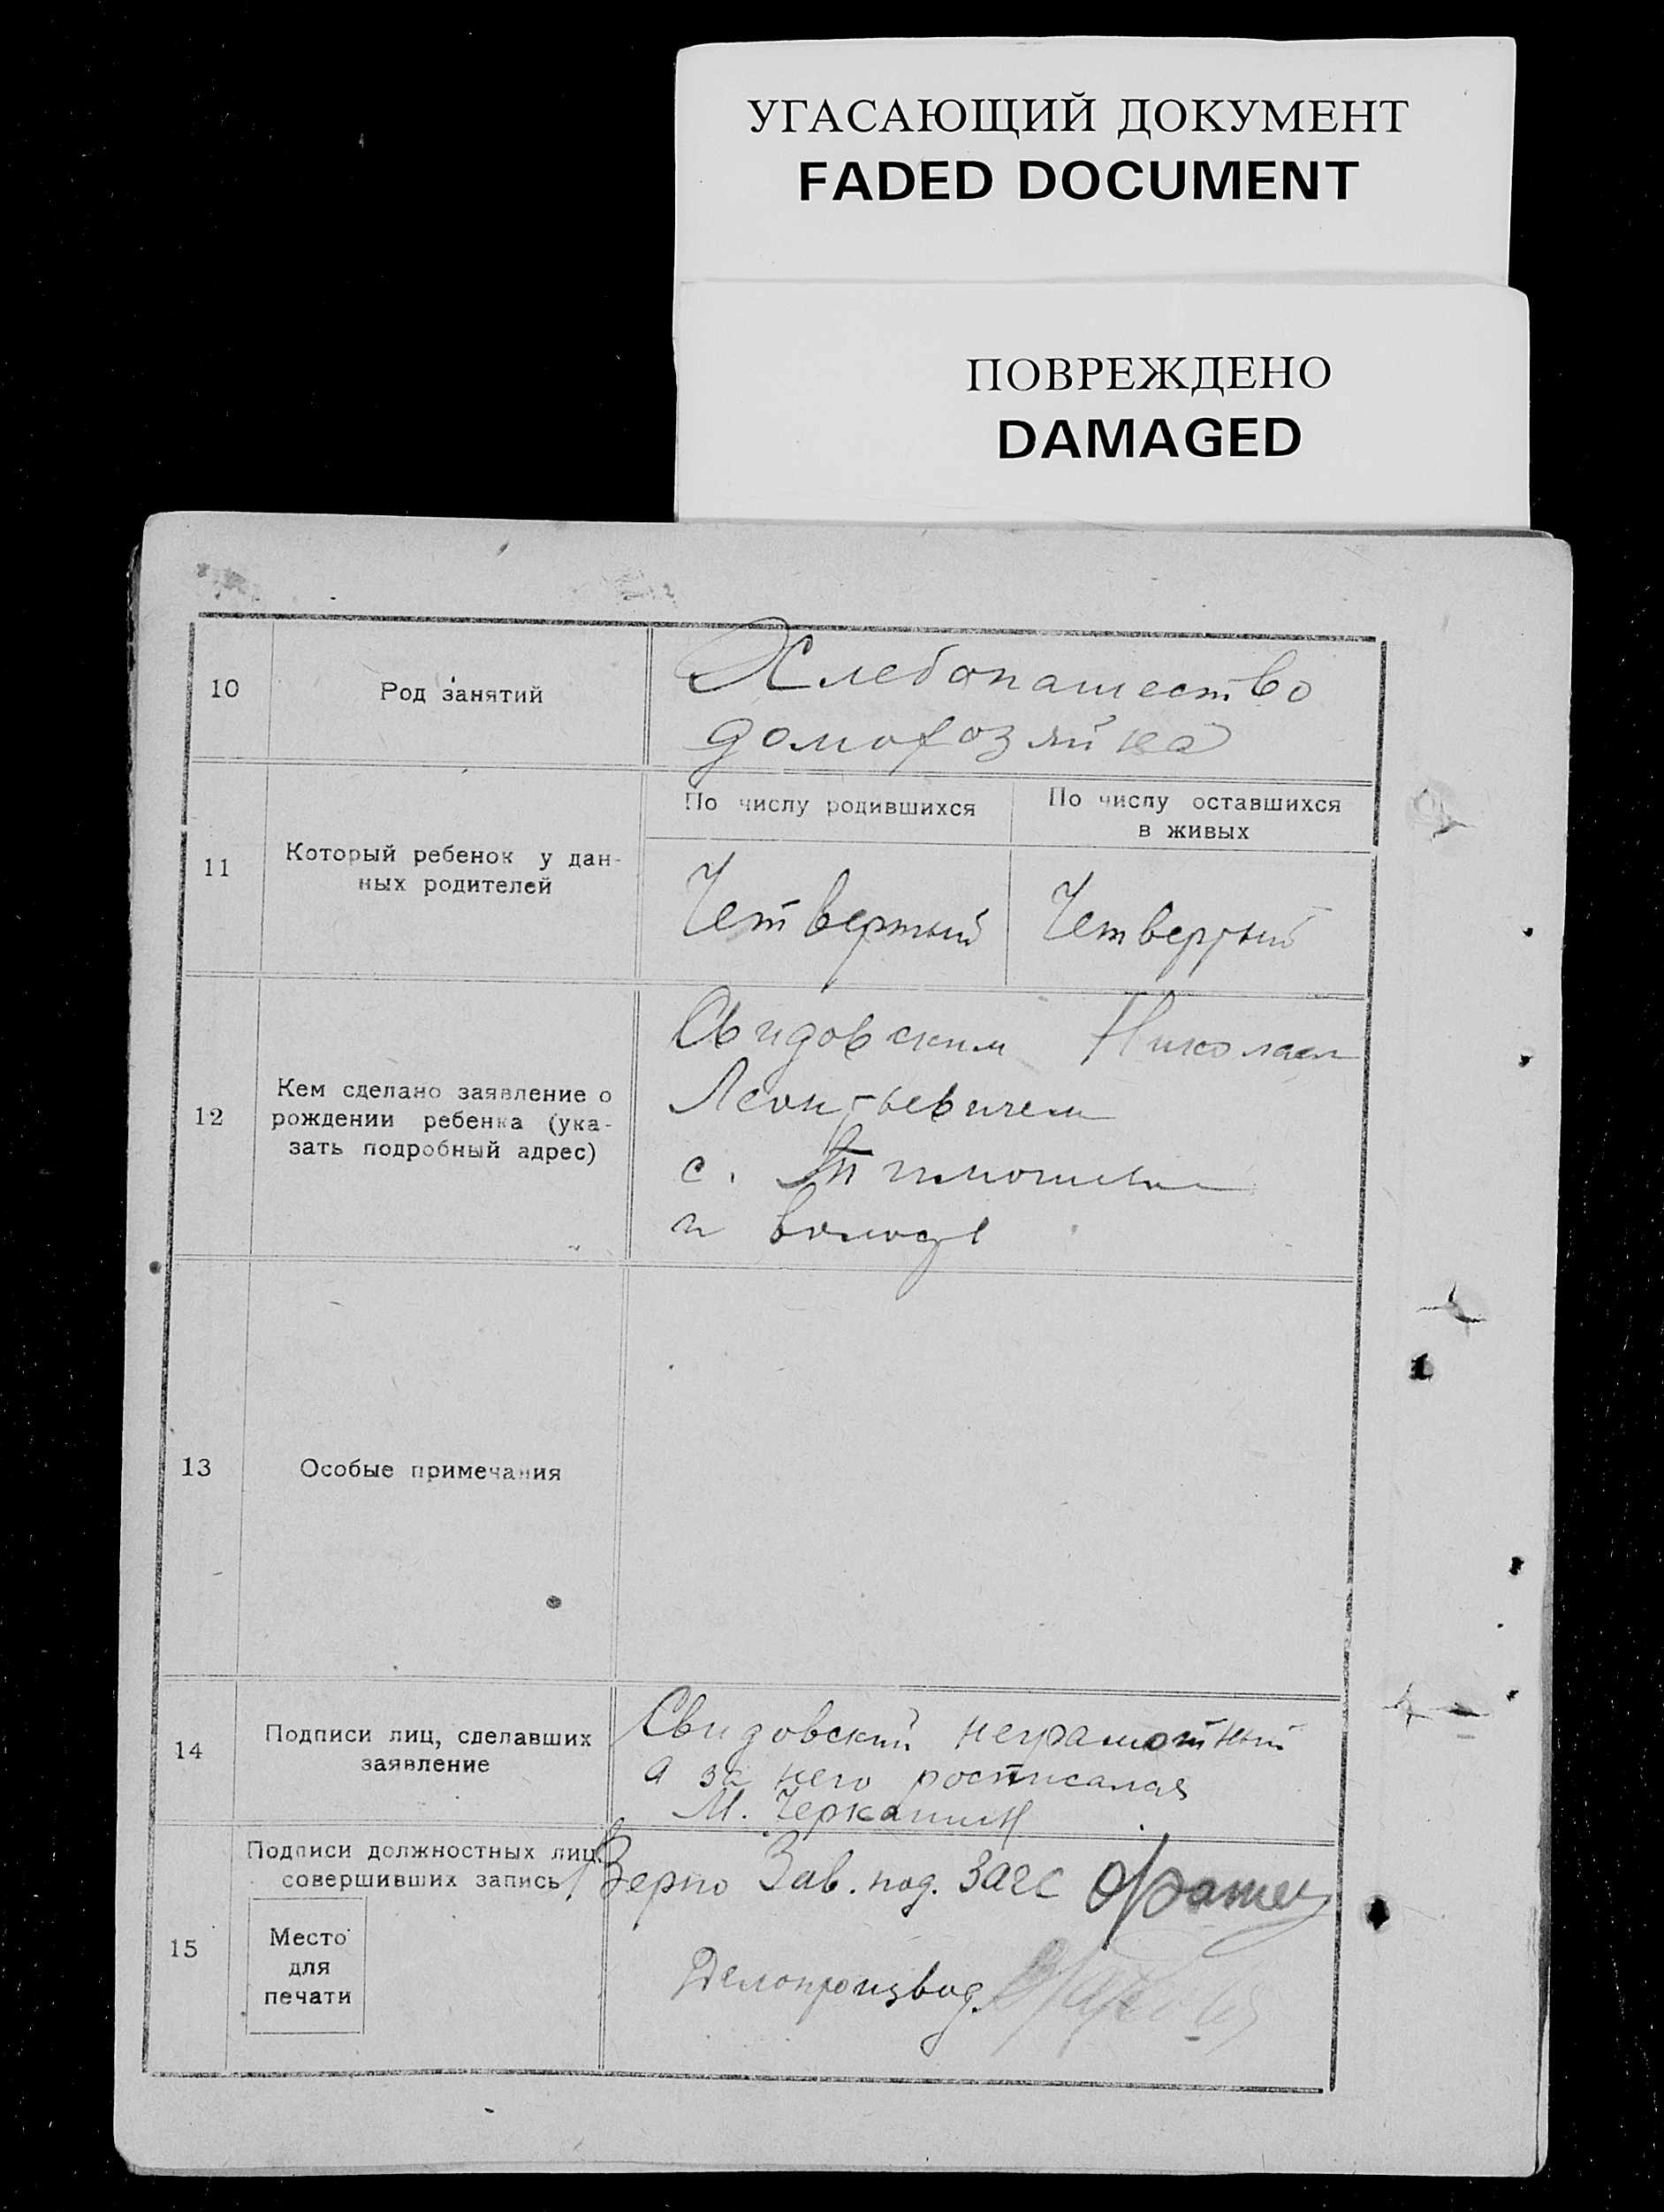 УГАСАЮЩИЙ ДОКУМЕНТ
FADED DOCUMENT
ПОВРЕЖДЕНО
DAMAGED
10
Род занятий
Хлебопашество
домохозяйка
11
Который ребенок у дан-
ных родителей
По числу родившихся
По числу оставшихся
в живых
Четвертый
Четвертый
12
Кем сделано заявление о
рождении ребенка (ука-
зать подробный адрес)
Свидовским Николаем
Леонтьевичем
с.
13
Особые примечания
14
Подписи лиц, сделавших
заявление
Свидовский неграмотный
а за него росписалая
М.
15
Подписи должностных лиц,
совершивших запись
Место
для
печати
Верно Зав. под. ЗАГС
Делопроизвод.